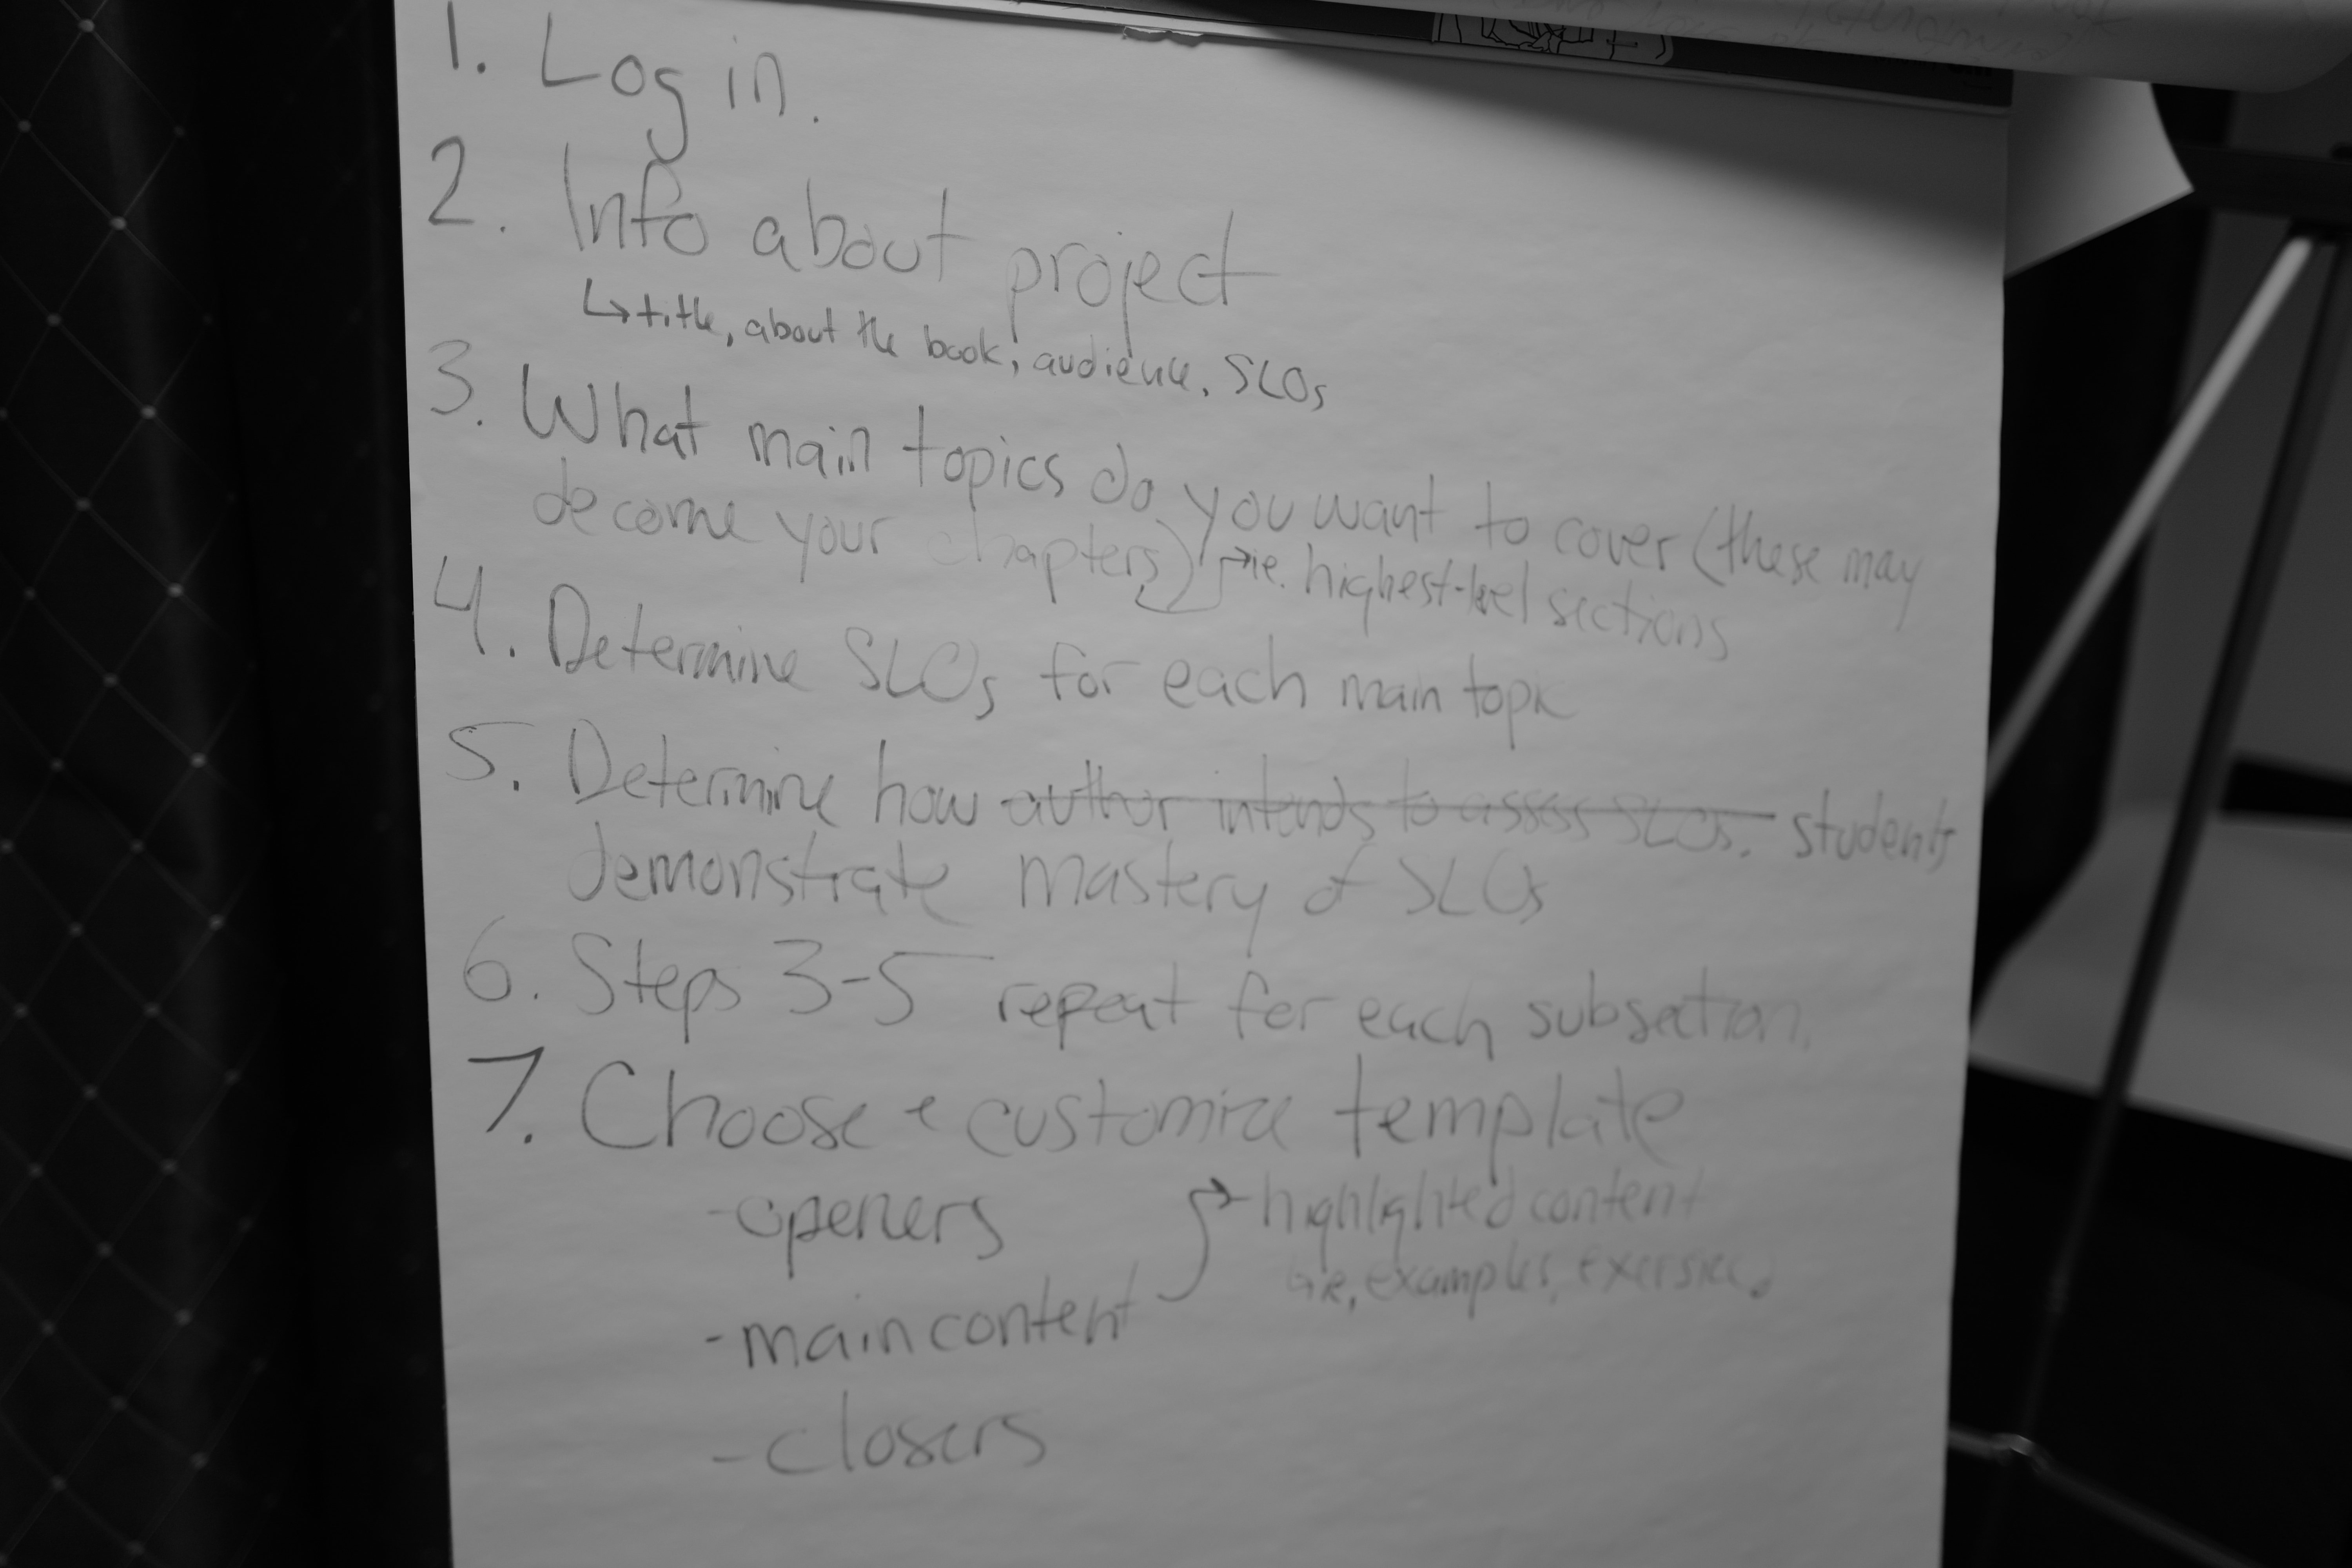 1. Log in.
2. Info about project
↳ title, about the book, audience, SLOs
3. What main topics do you want to cover (these may
become your chapters) → ie. highest-level sections
4. Determine SLOs for each main topic
5. Determine how ~~author intends to assess SLOs.~~ students
demonstrate mastery of SLOs
6. Steps 3-5 repeat for each subsection.
7. Choose + customize template
-openers
→ highlighted content
i.e, examples, exersices
-main content
-closers